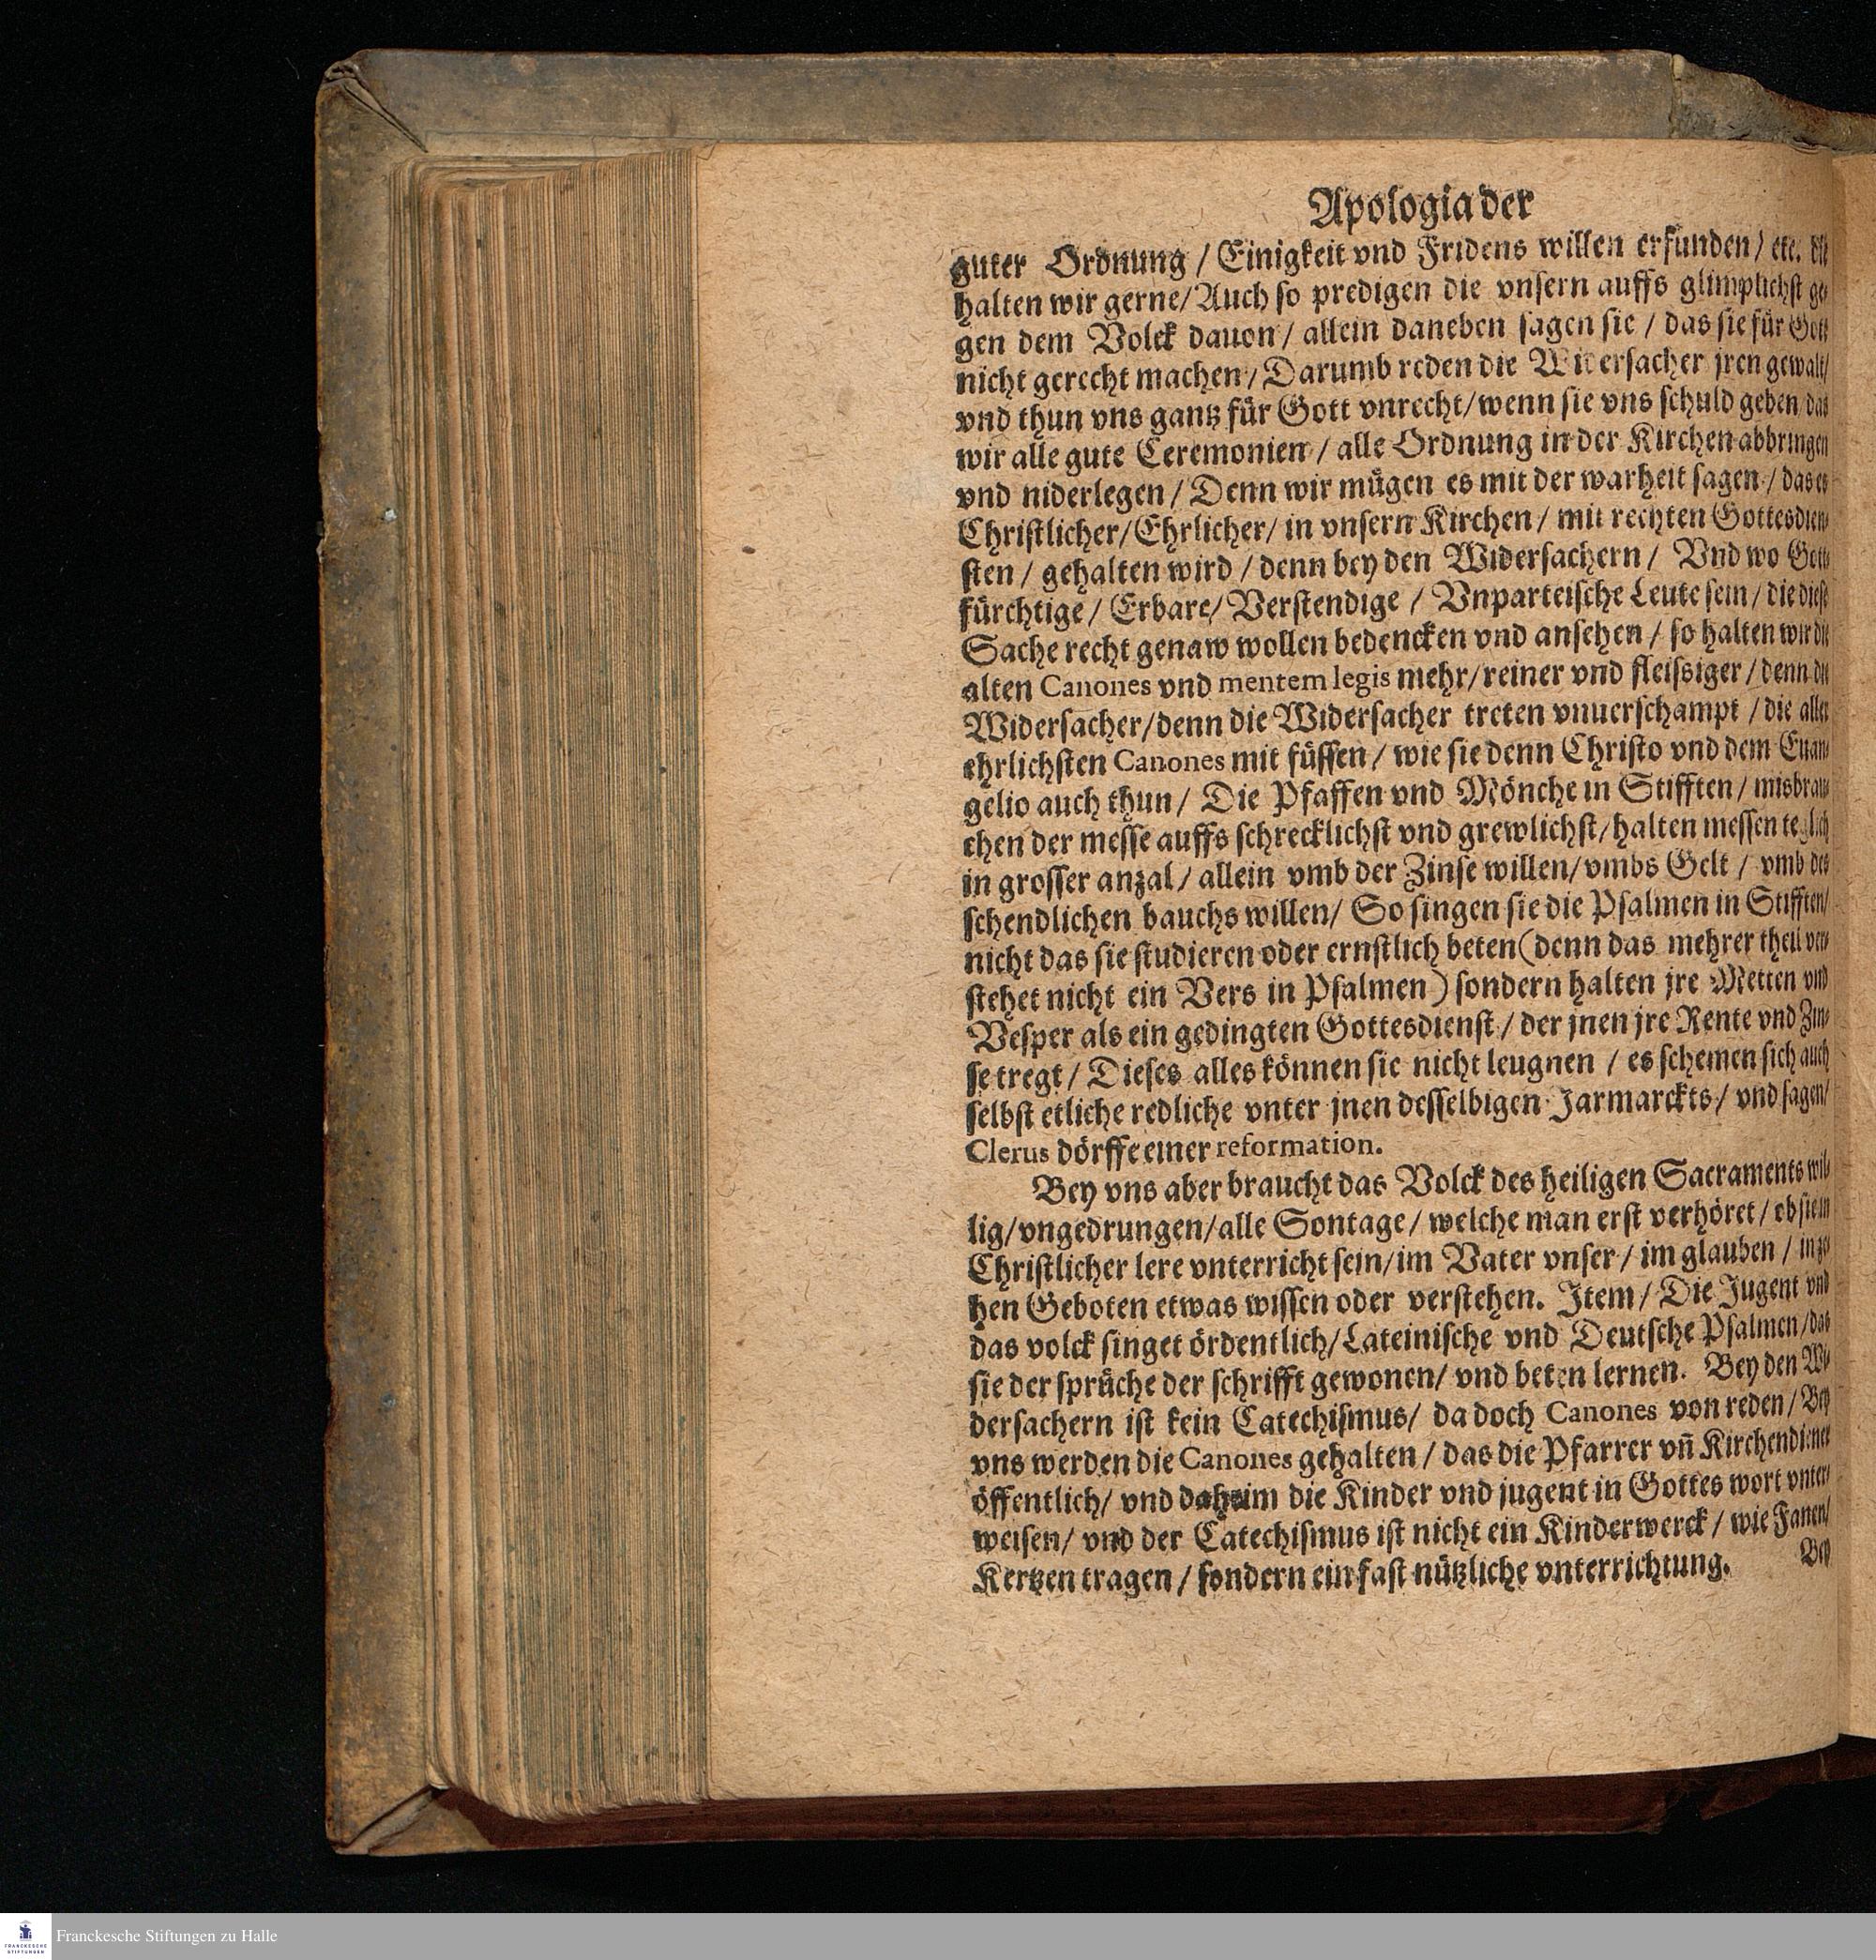 Apologia der
guter Ordnung / Einigkeit vnd Fridens willen erfunden / etc. die
halten wir gerne / Auch so predigen die vnsern auffs glimplichst ge-
gen dem Volck dauon / allein daneben sagen sie / das sie für Gott
nicht gerecht machen / Darumb reden die Widersacher jren gewalt /
vnd thun vns gantz für Gott vnrecht / wenn sie vns schuld geben / das
wir alle gute Ceremonien / alle Ordnung in der Kirchen abbringen
vnd niderlegen / Denn wir mügen es mit der warheit sagen / das es
Christlicher / Ehrlicher / in vnsern Kirchen / mit rechten Gottesdien-
sten / gehalten wird / denn bey den Widersachern / Vnd wo Gott-
fürchtige / Erbare / Verstendige / Vnparteische Leute sein / die diese
Sache recht genaw wollen bedencken vnd ansehen / so halten wir die
alten Canones vnd mentem legis mehr / reiner vnd fleissiger / denn die
Widersacher / denn die Widersacher treten vnuerschampt / die aller
ehrlichsten Canones mit füssen / wie sie denn Christo vnd dem Euan-
gelio auch thun / Die Pfaffen vnd Mönche in Stifften / misbrau-
chen der messe auffs schrecklichst vnd grewlichst / halten messen teglich
in grosser anzal / allein vmb der Zinse willen / vmbs Gelt / vmb des
schendlichen bauchs willen / So singen sie die Psalmen in Stifften /
nicht das sie studieren oder ernstlich beten (denn das mehrer theil ver-
stehet nicht ein Vers in Psalmen) sondern halten jre Metten vnd
Vesper als ein gedingten Gottesdienst / der jnen jre Rente vnd Zin-
se tregt / Dieses alles können sie nicht leugnen / es schemen sich auch
selbst etliche redliche vnter jnen desselbigen Jarmarckts / vnd sagen /
Clerus dörffe einer reformation.
Bey vns aber braucht das Volck des heiligen Sacraments wil-
lig / vngedrungen / alle Sontage / welche man erst verhöret / ob sie in
Christlicher lere vnterricht sein / im Vater vnser / im glauben / in ze-
hen Geboten etwas wissen oder verstehen. Item / Die Jugent vnd
das volck singet ördentlich / Lateinische vnd Deutsche Psalmen / das
sie der sprüche der schrifft gewonen / vnd beten lernen. Bey den Wi-
dersachern ist kein Catechismus / da doch Canones von reden / Bey
vns werden die Canones gehalten / das die Pfarrer vn̄ Kirchendiener
öffentlich / vnd daheim die Kinder vnd jugent in Gottes wort vnter-
weisen / vnd der Catechismus ist nicht ein Kinderwerck / wie Fanen /
Kertzen tragen / sondern ein fast nützliche vnterrichtung.
Bey
Franckesche Stiftungen zu Halle
FRANCKESCHE
STIFTUNGEN